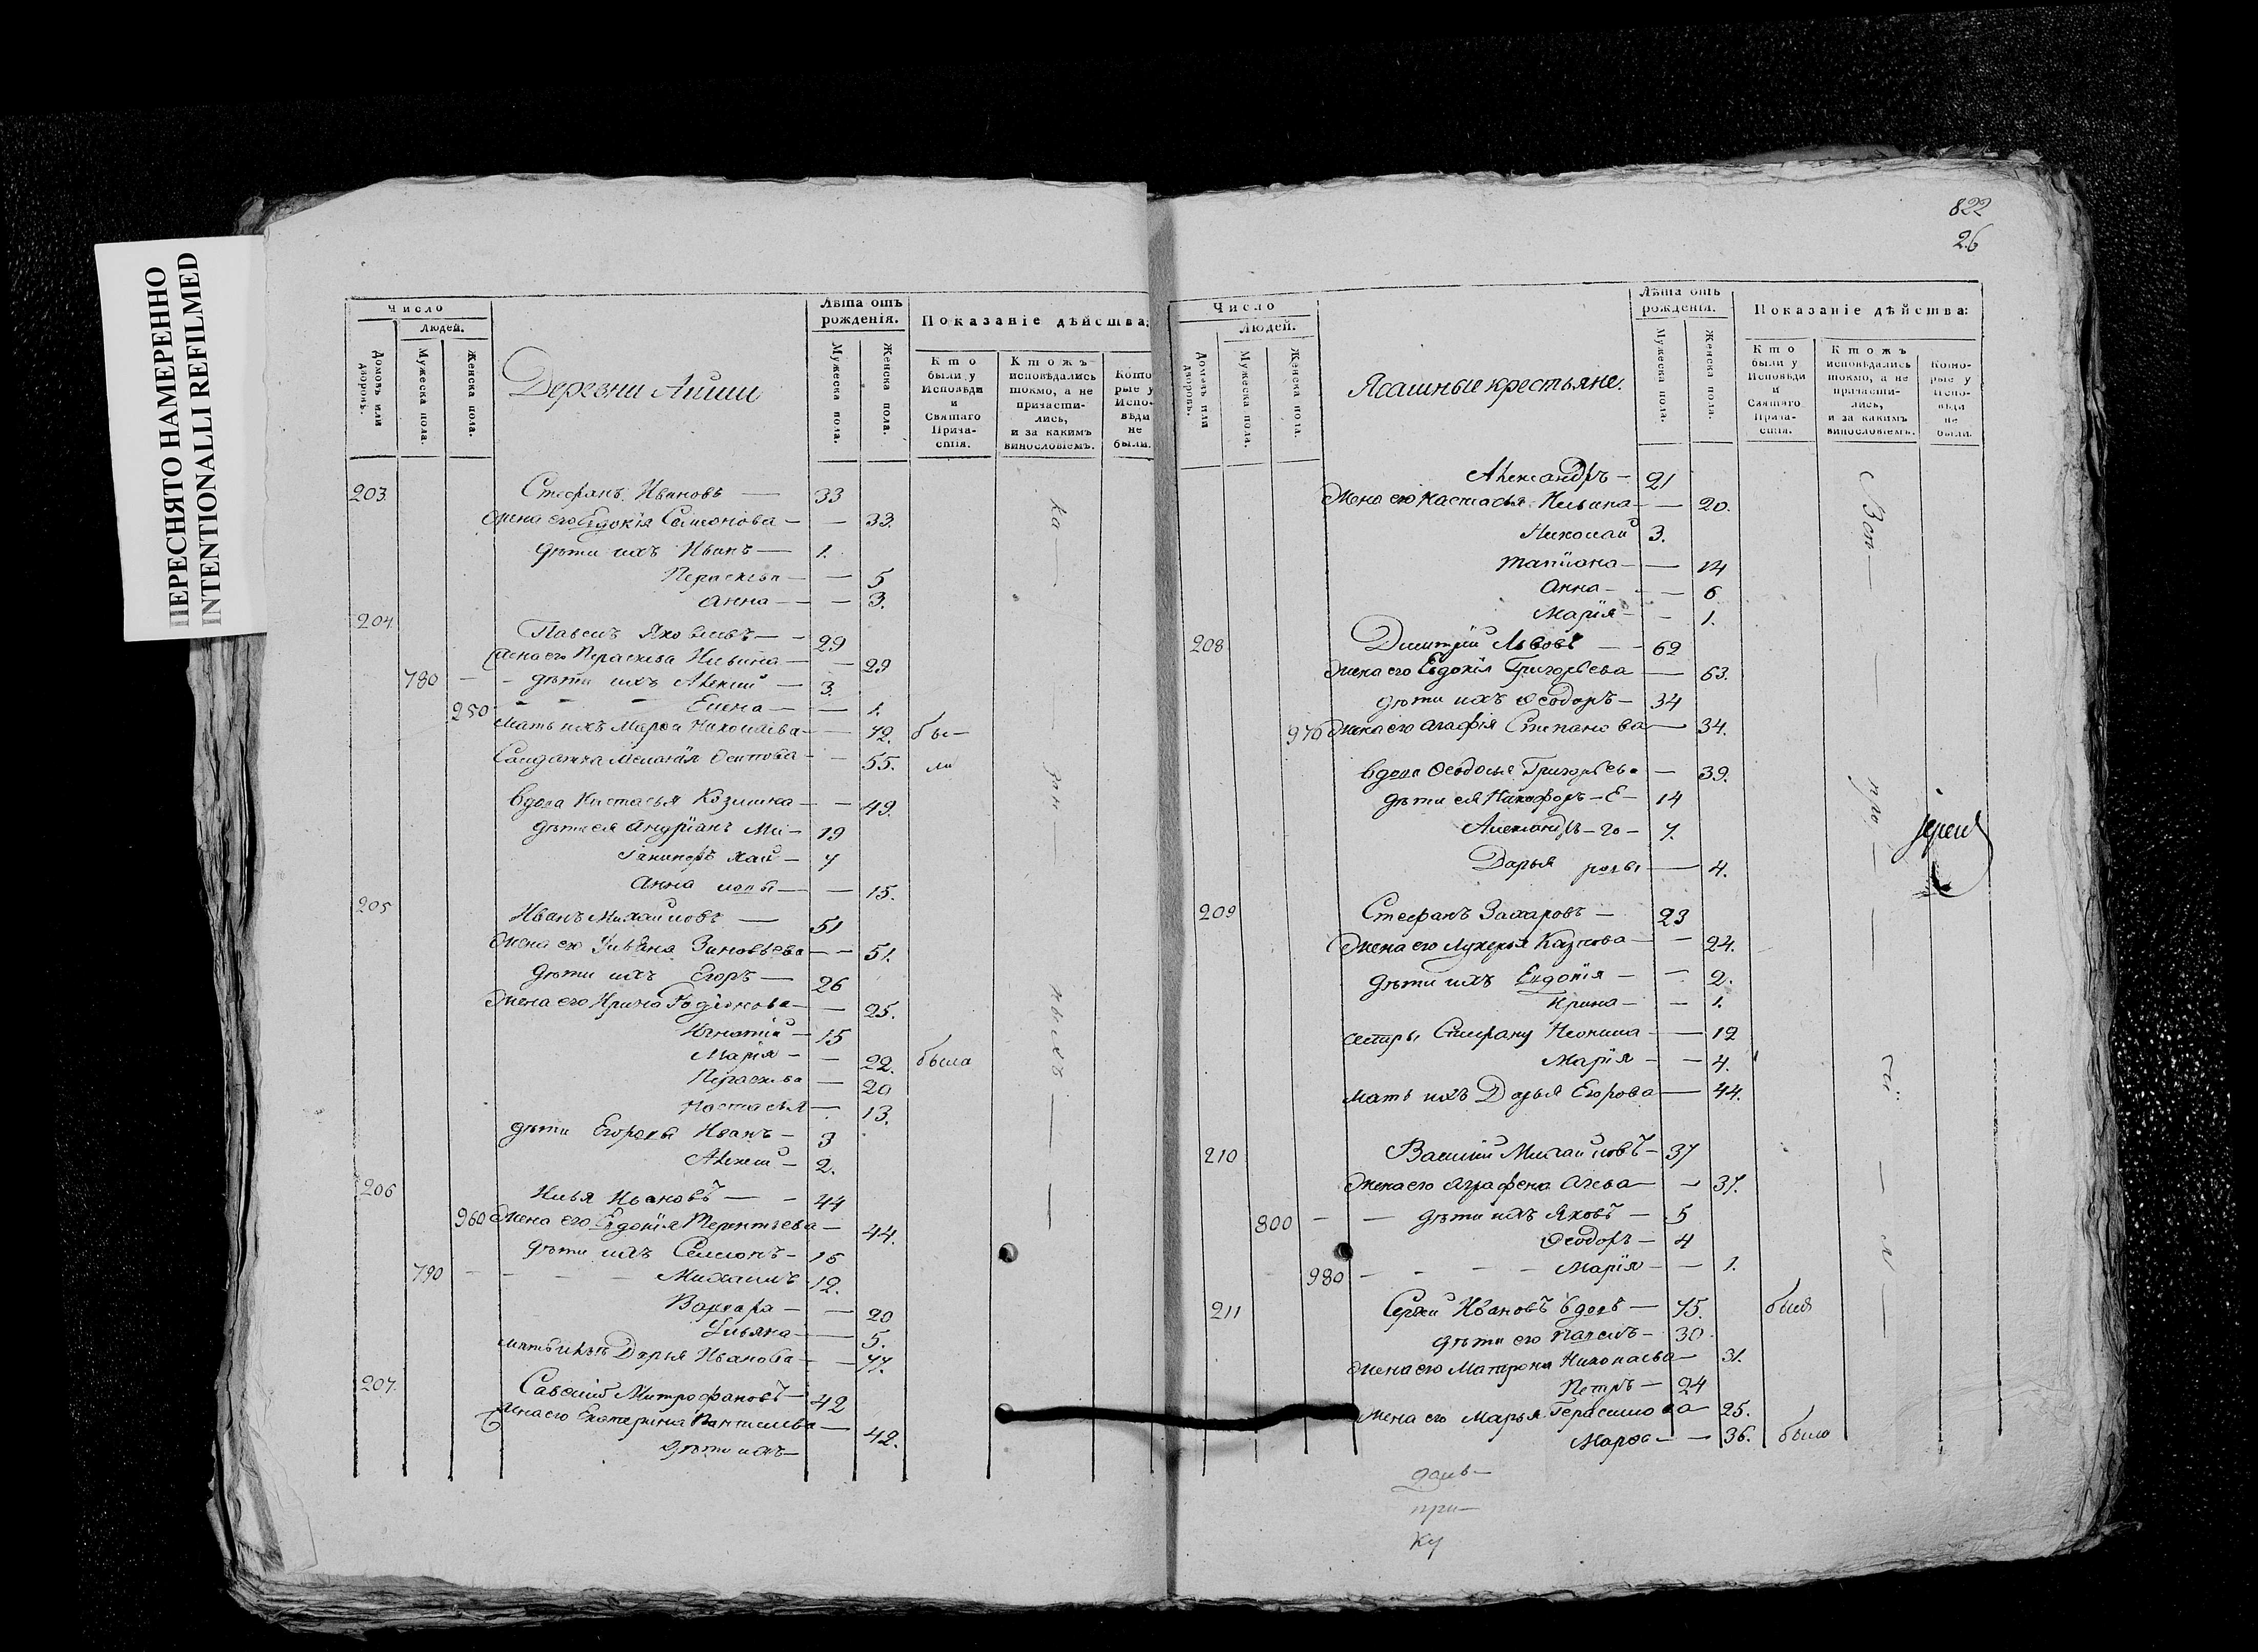 ПЕРЕСНЯТО НАМЕРЕННО
INTENTIONALLI REFILMED
Число
Людей.
Домовъ или дворовъ.
Мужеска пола.
Женска пола.
Деревни
Лѣта отъ рожденія.
Мужеска пола.
Женска пола.
Показаніе дѣйства:
Кто были у Исповѣди и Святаго Прича-стія.
Ктожъ исповѣдались токмо, а не причасти-лись, и за какимъ винословіемъ.
Кото-рые у Испо-вѣди не были.
203 Стефанъ Ивановъ — 33
Жена его Евдокія Самсонова — — 33.
дѣти ихъ Иванъ — 1.
Параскева — — 5
Анна — — 3.
204 Павелъ Яковлевъ — — 29
Жена его Параскева Ильина — — 29
780 — — дѣти ихъ Алексій — 3.
Елена — — 1.
мать ихъ Марфа Николаева — — 72. бы—
Солдатка Меланія Осипова — — 55. ла
вдова Настасья Козмина — — 49.
дѣти ея Андріанъ Ми — 19
хаи — 7
Анна ловы — — 15.
205 Иванъ Михаиловъ — 51
Жена его Ульяна Зиновьева — — 51.
дѣти ихъ Егоръ — 26
Жена его Ирина Родіонова — — 25.
Игнатій — 15
Марія — — 22. была
Параскева — 20
Настасья — 13.
дѣти Егоровы Иванъ — 3
Алексій — 2.
206 Илья Ивановъ — — 44
960 Жена его Евдокія Терентьева — 44.
дѣти ихъ Семіонъ — 16
790 — — — Михаилъ — 12.
Варвара — — 20
Ульяна — — 5.
мать ихъ Дарья Иванова — — 77.
207 Савелій Митрофановъ — 42
Жена его Екатерина — 42.
дѣти ихъ —
822
26
Число
Людей.
Домовъ или дворовъ.
Мужеска пола.
Женска пола.
Ясашные крестьяне.
Лѣта отъ рожденія.
Мужеска пола.
Женска пола.
Показаніе дѣйства:
Кто были у Исповѣди и Святаго Прича-стія.
Ктожъ исповѣдались токмо, а не причасти-лись, и за какимъ винословіемъ.
Кото-рые у Испо-вѣди не были.
Александръ — 21
Жена его Настасья Ильина — — 20.
Николай 3.
Татіана — — 14
Анна — — 6
Марія — — 1.
208 Димитрій Львовъ — — 62
Жена его Евдокія Григорьева — 63.
дѣти ихъ Ѳеодоръ — 34
970 Жена его Агафія Степанова — 34.
вдова Ѳеодосья Григорьева — 39.
дѣти ея Никифоръ — Е — 14
Александръ — го — 7.
Дарья ровы — 4.
Іерей
209 Стефанъ Захаровъ — 23
Жена его Лукерья Карпова — — 24.
дѣти ихъ Евдокія — — 2.
Ирина — — 1.
сестры Стефану Неонила — — 12
Марія — — 4.
мать ихъ Дарья Егорова — 44.
210 Василій Михаиловъ — 37
Жена его Аграфена — — 37.
800 — — дѣти ихъ Яковъ — 5
Ѳеодоръ — 4
980 — — — Марія — — 1.
211 Сергѣй Ивановъ вдовъ — 75. былъ
дѣти его Павелъ — 30.
Жена его Матрона Николаева — 31.
Петръ — 24
Жена его Марья Герасимова 25.
Марфа — — 36. была